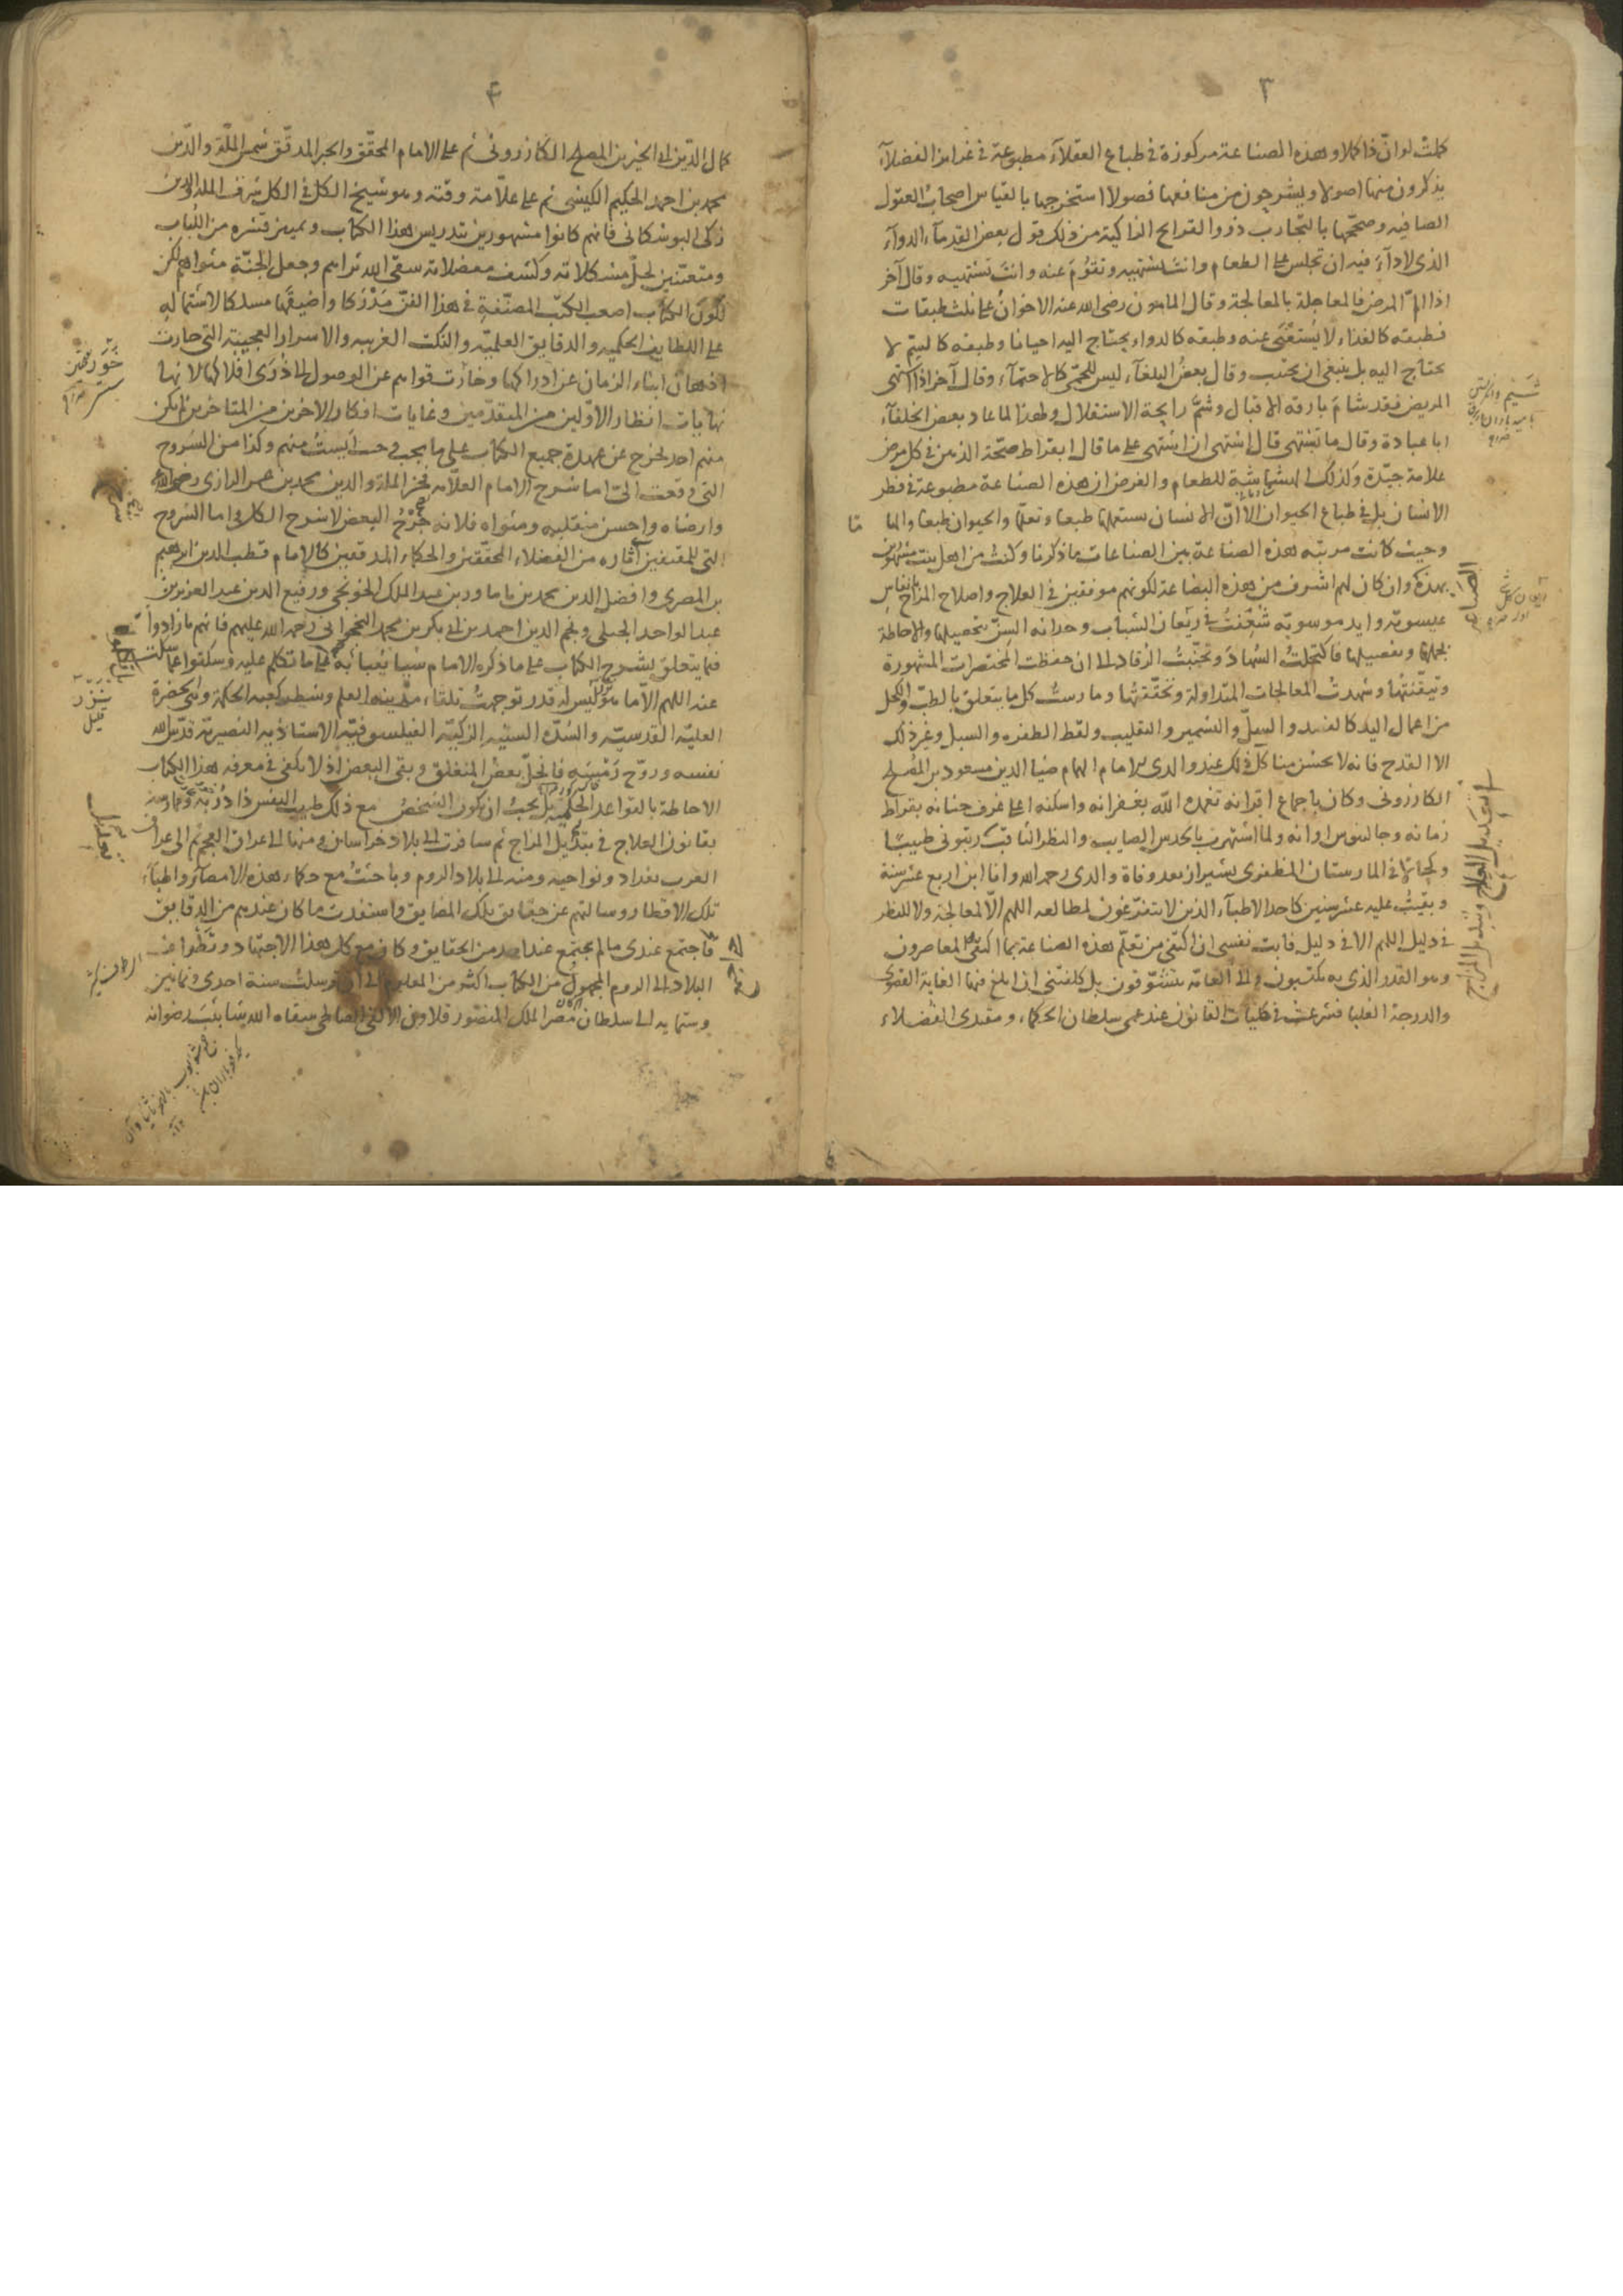 ٣
كلمت لو ان ذا كملا وهذه الصناعة مركوزة فى طباع العقلاء مطبوعة فى غرايز الفضلآء
يذكرون منها اصولا ويشرحون من منافعها فصولا استخرجها بالقياس اصحاب العقول
الصافيه وصححها بالتجارب ذوو القرايح الذاكية من ذلك قول بعض القدمآء الدوآء
الذى لا دآء فيه ان تجلس على الطعام وانت تشتهيه وتقوم عنه وانت تشتهيه وقال آخر
اذا الم المرض فالمعاجلة بالمعالجة وقال المامون رضى الله عنه الاخوان على ثلث طبقات
فطبقه كالغذاء لا يُستغنى عنه وطبقه كالدواء يحتاج اليه احيانا وطبقه كالسم لا
يحتاج اليه بل ينبغى ان يجتنب وقال بعض البلغآء ليس للحمى كالاحتمآء وقال آخر اذا اشتهى
المريض فقد شام بارقه الاقبال وشم رايحة الاستقلال ولهذا لما عاد بعض الخلفآء
ابا عبادة وقال ما تشتهى قال اشتهى ان اشتهى على ما قال ابقراط صحة الذهن فى كل مرض
علامة جيدة وكذلك الهشاشة للطعام والغرض ان هذه الصناعة مطبوعة فى فطر
الانسان بل فى طباع الحيوان الا ان الانسان يستعملها طبعا وتعلما والحيوان طبعا والما
وحيث كانت مرتبه هذه الصناعة بين الصناعات ما ذكرنا وكنت من اهل بيت مشهورين
بهذه وان كان لهم اشرف من هذه الصناعة لكونهم موفقين فى العلاج واصلاح المزاج بانفاس
عيسوية وايد موسوية شُغِفت فى ريعان الشباب وحداثه السن بتحصيلها والاحاطة
بجملها وتفصيلها فاكتحلت السهاد وتجنبت الرقاد الى ان حفظت المختصرات المشهورة
وتيقنتها وشهدت المعالجات المتداولة وتحققتها ومارست كل ما يتعلق بالطب والكحل
من اعمال اليد كالفصد والسل والتشمير والتقليب ولقط الظفره والسبل وغير ذلك
الا القدح فانه لا يحسن منا كل ذلك عند والدى الامام الهمام ضيا الدين مسعود بن المصلح
الكازرونى وكان باجماع اقرانه تغمده الله بغفرانه واسكنه اعلى غرف جنانه بقراط
زمانه وجالينوس اوانه ولما اشتهرت بالحدس الصايب والنظر الثاقب رتبونى طبيبا
وكحالا فى المارستان المظفرى بشيراز بعد وفاة والدى رحمه الله وانا ابن اربع عشر سنة
وبقيت عليه عشر سنين كاحد الاطبآء الذين لا يتفرغون لمطالعه اللهم الا لمعالجة ولا للنظر
فى دليل اللهم الا فى دليل فابت نفسى ان اكتفى من تعلم هذه الصناعة بما اكتفى المعاصرون
وهو القدر الذى به يكتسبون والى العامة يتشوقون بل كلفتنى ان ابلغ فيها الغاية القصوى
والدرجة العليا فشرعت فى كليات القانون عند عمى سلطان الحكماء ومقتدى الفضلاء
التعديل العلاج وتبديل المزاج
٤
كمال الدين ابى الخير بن المصلح الكازرونى ثم على الامام المحقق والحبر المدقق شمس الملة والدين
محمد بن احمد الحكيم الكيشى ثم على علامة وقته وهو شيخ الكل فى الكل شرف الملة والدين
زكى البوشكانى فانهم كانوا مشهورين بتدريس هذا الكتاب وتمييز قشره من اللباب
ومتعينين لحل مشكلاته وكشف معضلاته سقى الله ثراهم وجعل الجنة مثواهم لكن
لكون الكتاب اصعب الكتب المصنفة فى هذا الفن مدركا واضيقها مسلكا لاشتماله
على اللطايف الحكميه والدقايق العلمية والنكت الغريبه والاسرار العجيبة التى حارت
اذهان ابناء الزمان عن ادراكها وخارت قواهم عن الوصول الى ذرى افلاكها لانها
نهايات انظار الاولين من المتقدمين وغايات افكار الاخرين من المتاخرين لم يكن
منهم احد يخرج عن عهدة جميع الكتاب على ما يجب وحيث ايست منهم وكذا من الشروح
التى وقعت الى اما شرح الامام العلامة فخر الملة والدين محمد بن عمر الرازى رضى الله عنه
وارضاه واحسن منقلبه ومثواه فلانه جرح البعض لا شرح الكل واما الشروح
التى للمقتفين آثاره من الفضلاء المحققين والحكماء المدققين كالامام قطب الدين ابراهيم
بن المصرى وافضل الدين محمد بن ناماور بن عبد الملك الخونجى ورفيع الدين عبد العزيز بن
عبد الواحد الجيلى ونجم الدين احمد بن ابى بكر بن محمد النخجوانى رحمة الله عليهم فانهم ما زادوا
فيما يتعلق بشرح الكتاب على ما ذكره الامام شيا يُعبا به على ما تكلم عليه وسكتوا عما سكت
عنه اللهم الا ما ليس له قدر توجهت تلقاء مدينه العلم وشطر كعبه الحكمة وهى حضرة
العلية القدسية والسدة السنيه الزكية الفيلسوفية الاستاذيه النصيرية قدس الله
نفسه وروح رمسه فانحل بعض المنغلق وبقى البعض اذ لا يكفى فى معرفه هذا الكتاب
الاحاطة بالقواعد الحكمية بل يجب ان يكون الشخص مع ذلك طيب النفس ذا دربة وممارسة
بقانون العلاج فى تبديل المزاج ثم سافرت الى بلاد خراسان ومنها الى عراق العجم ثم الى عراق
العرب بغداد ونواحيه ومنه الى بلاد الروم وباحثت مع حكماء هذه الامصار واطبآء
تلك الاقطار وسالتهم عن حقايق تلك المضايق واستفدت ما كان عندهم من الدقايق
فاجتمع عندى ما لم يجتمع عند احد من الحقايق وكان مع كل هذا الاجتهاد
البلاد الى الروم المجهول من الكتاب اكثر من المعلوم الى ان ترسلت سنة احدى وثمانين
وستمايه الى سلطان مصر الملك المنصور قلاوون الالفى الصالحى سقاه الله شابيب رضوانه